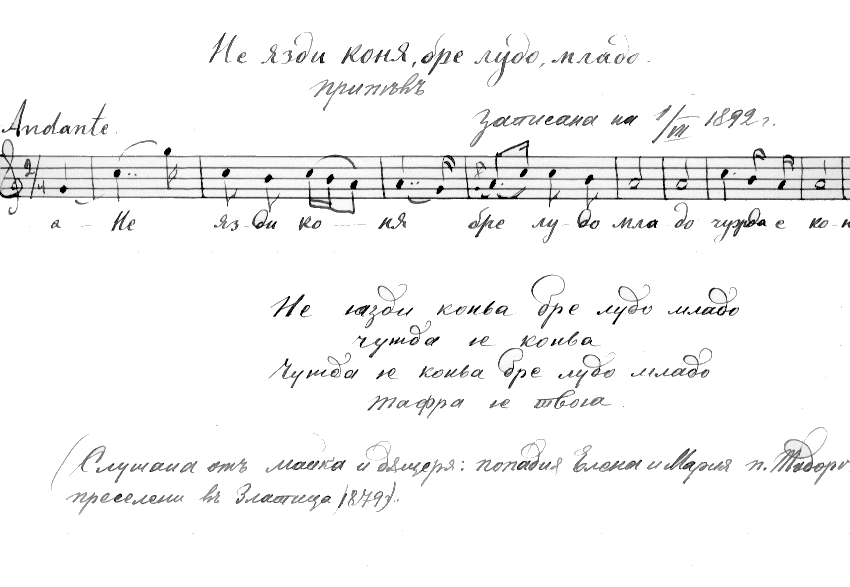 Не язди коня, бре лудо, младо.
припѣвъ
Записана на 1/III 1892 г.
Andante.
2/4
а-- Не яз-ди ко---ня бре лу-до мла-до чужда е ко-н
Не ıазди конѣа бре лудо младо
чужда ıе конѣа
Чужда ıе конѣа бре лудо младо
тафра ıе твоıа.
(Слушана отъ майка и дъщеря: попадия Елена и Мария п. Тодоро
преселени въ Златица (1879)).